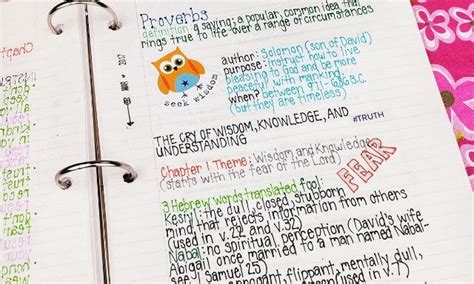 Proverbs
definition: a saying; a popular, common idea that
rings true to life over a range of circumstances
author: Solomon (son of David)
purpose: instruct how to live
pleasing to God and be more
peaceful with mankind
when? between
(but they are timeless)
seek wisdom
THE CRY OF WISDOM, KNOWLEDGE, AND
UNDERSTANDING
#TRUTH
Chapter 1 Theme: Wisdom and Knowledge
(starts with the fear of the Lord)
FEAR
3 Hebrew words translated fool:
Kesyl: the dull, closed, stubborn
mind that rejects information from others
(used in v.22 and v.32)
Nabal: no spiritual perception (David's wife
Abigail once married to a man named Nabal-
see 1 Samuel 25)
arrogant, flippant, mentally dull,
Chapt